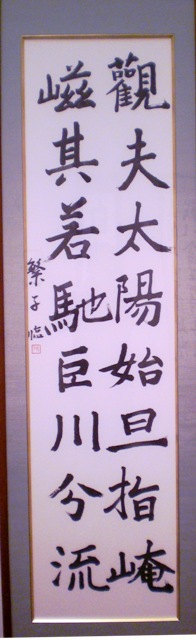 觀夫太陽始旦指崦
嵫其若馳巨川分流
繁子臨